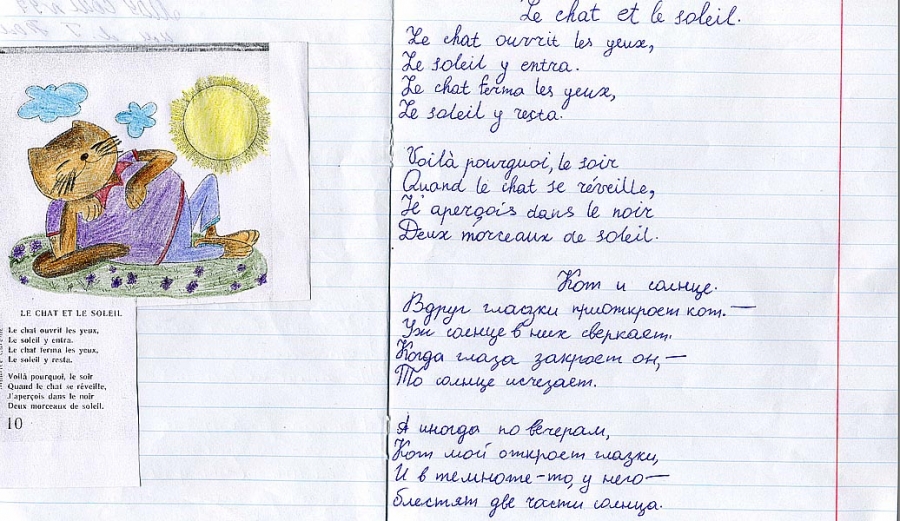 LE CHAT ET LE SOLEIL
Le chat ouvrit les yeux,
Le soleil y entra.
Le chat ferma les yeux,
Le soleil y resta.
Voilà pourquoi, le soir
Quand le chat se réveille,
J'aperçois dans le noir
Deux morceaux de soleil.
10
Le chat et le soleil.
Le chat ouvrit les yeux,
Le soleil y entra.
Le chat ferma les yeux,
Le soleil y resta.
Voilà pourquoi, le soir
Quand le chat se réveille,
J'aperçois dans le noir
Deux morceaux de soleil.
Кот и солнце.
Вдруг глазки приоткроет кот. —
Уж солнце в них сверкает.
Когда глаза закроет он, —
То солнце исчезает.
А иногда по вечерам,
Кот мой откроет глазки,
И в темноте-то, у него —
блестят две части солнца.